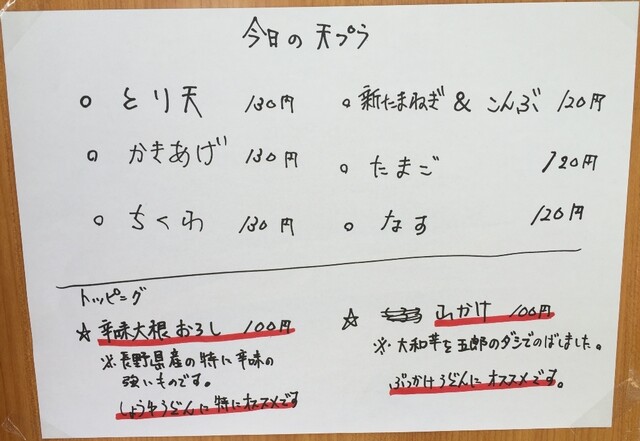 今日の天プラ
○ とり天 130円
○ かきあげ 130円
○ ちくわ 130円
○ 新たまねぎ & こんぶ 120円
○ たまご 120円
○ なす 120円
トッピング
☆ 辛味大根おろし 100円
※長野県産の特に辛味の
強いものです。
しょうゆうどんに特にオススメです
☆ 山かけ 100円
※大和芋を五郎のダシでのばしました。
ぶっかけうどんにオススメです。